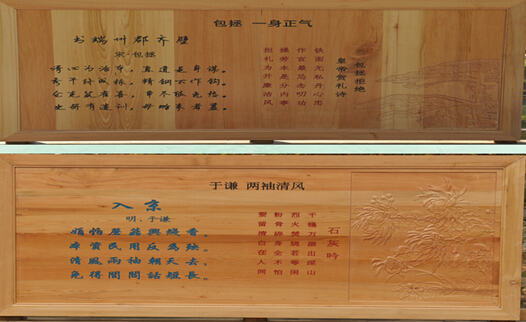 包拯 一身正气
书端州郡齐壁
宋·包拯
清心为治本,直道是身谋。
秀干终成栋,精钢不作钩。
仓充鼠雀喜,草尽狐兔愁。
史册有遗训,毋贻来者羞。
包拯拒绝
皇帝贺礼诗
铁面无私丹心忠
作官最忌念叨功
操劳本是分内事
拒礼为开廉洁风
于谦 两袖清风
入京
明·于谦
绢帕蘑菇與綫香。
本資民用反為殃。
清風兩袖朝天去。
免得閭閻話短長。
石灰吟
千锤万凿出深山
烈火焚烧若等闲
粉骨碎身全不怕
要留清白在人间